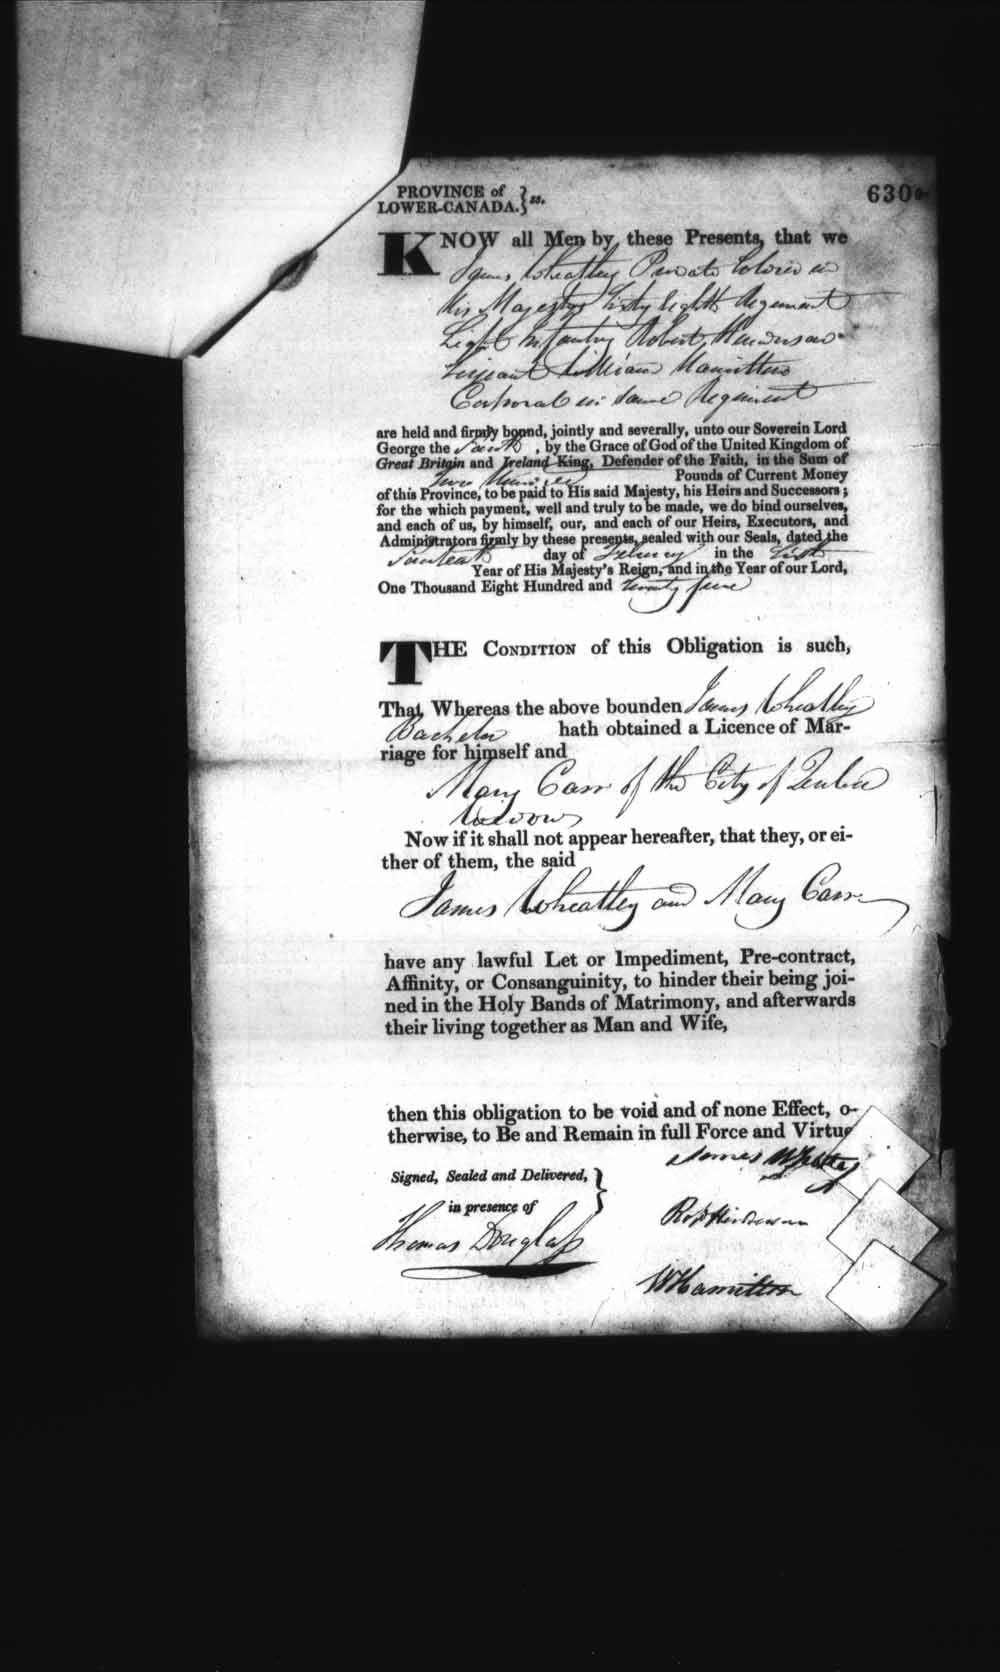 PROVINCE of
LOWER-CANADA. } ss.
6300
KNOW all Men by these Presents, that we
James Wheatley Private Soldier in
His Majestys Sixty Eighth Regiment
Light Infantry Robert Henderson
Serjeant William Hamilton
Corporal in same Regiment
are held and firmly bound, jointly and severally, unto our Soverein Lord
George the Fourth, by the Grace of God of the United Kingdom of
Great Britain and Ireland King, Defender of the Faith, in the Sum of
Two Hundred Pounds of Current Money
of this Province, to be paid to His said Majesty, his Heirs and Successors;
for the which payment, well and truly to be made, we do bind ourselves,
and each of us, by himself, our, and each of our Heirs, Executors, and
Administrators firmly by these presents, sealed with our Seals, dated the
day of February in the
Year of His Majesty's Reign, and in the Year of our Lord,
One Thousand Eight Hundred and twenty five
THE CONDITION of this Obligation is such,
That Whereas the above bounden James Wheatley
Bachelor hath obtained a Licence of Mar-
riage for himself and
Mary Carr of the City of Quebec
Widow
Now if it shall not appear hereafter, that they, or ei-
ther of them, the said
James Wheatley and Mary Carr
have any lawful Let or Impediment, Pre-contract,
Affinity, or Consanguinity, to hinder their being joi-
ned in the Holy Bands of Matrimony, and afterwards
their living together as Man and Wife,
then this obligation to be void and of none Effect, o-
therwise, to Be and Remain in full Force and Virtue
James Wheatley
Signed, Sealed and Delivered, }
in presence of
Robt Henderson
Thomas Douglass
W Hamilton